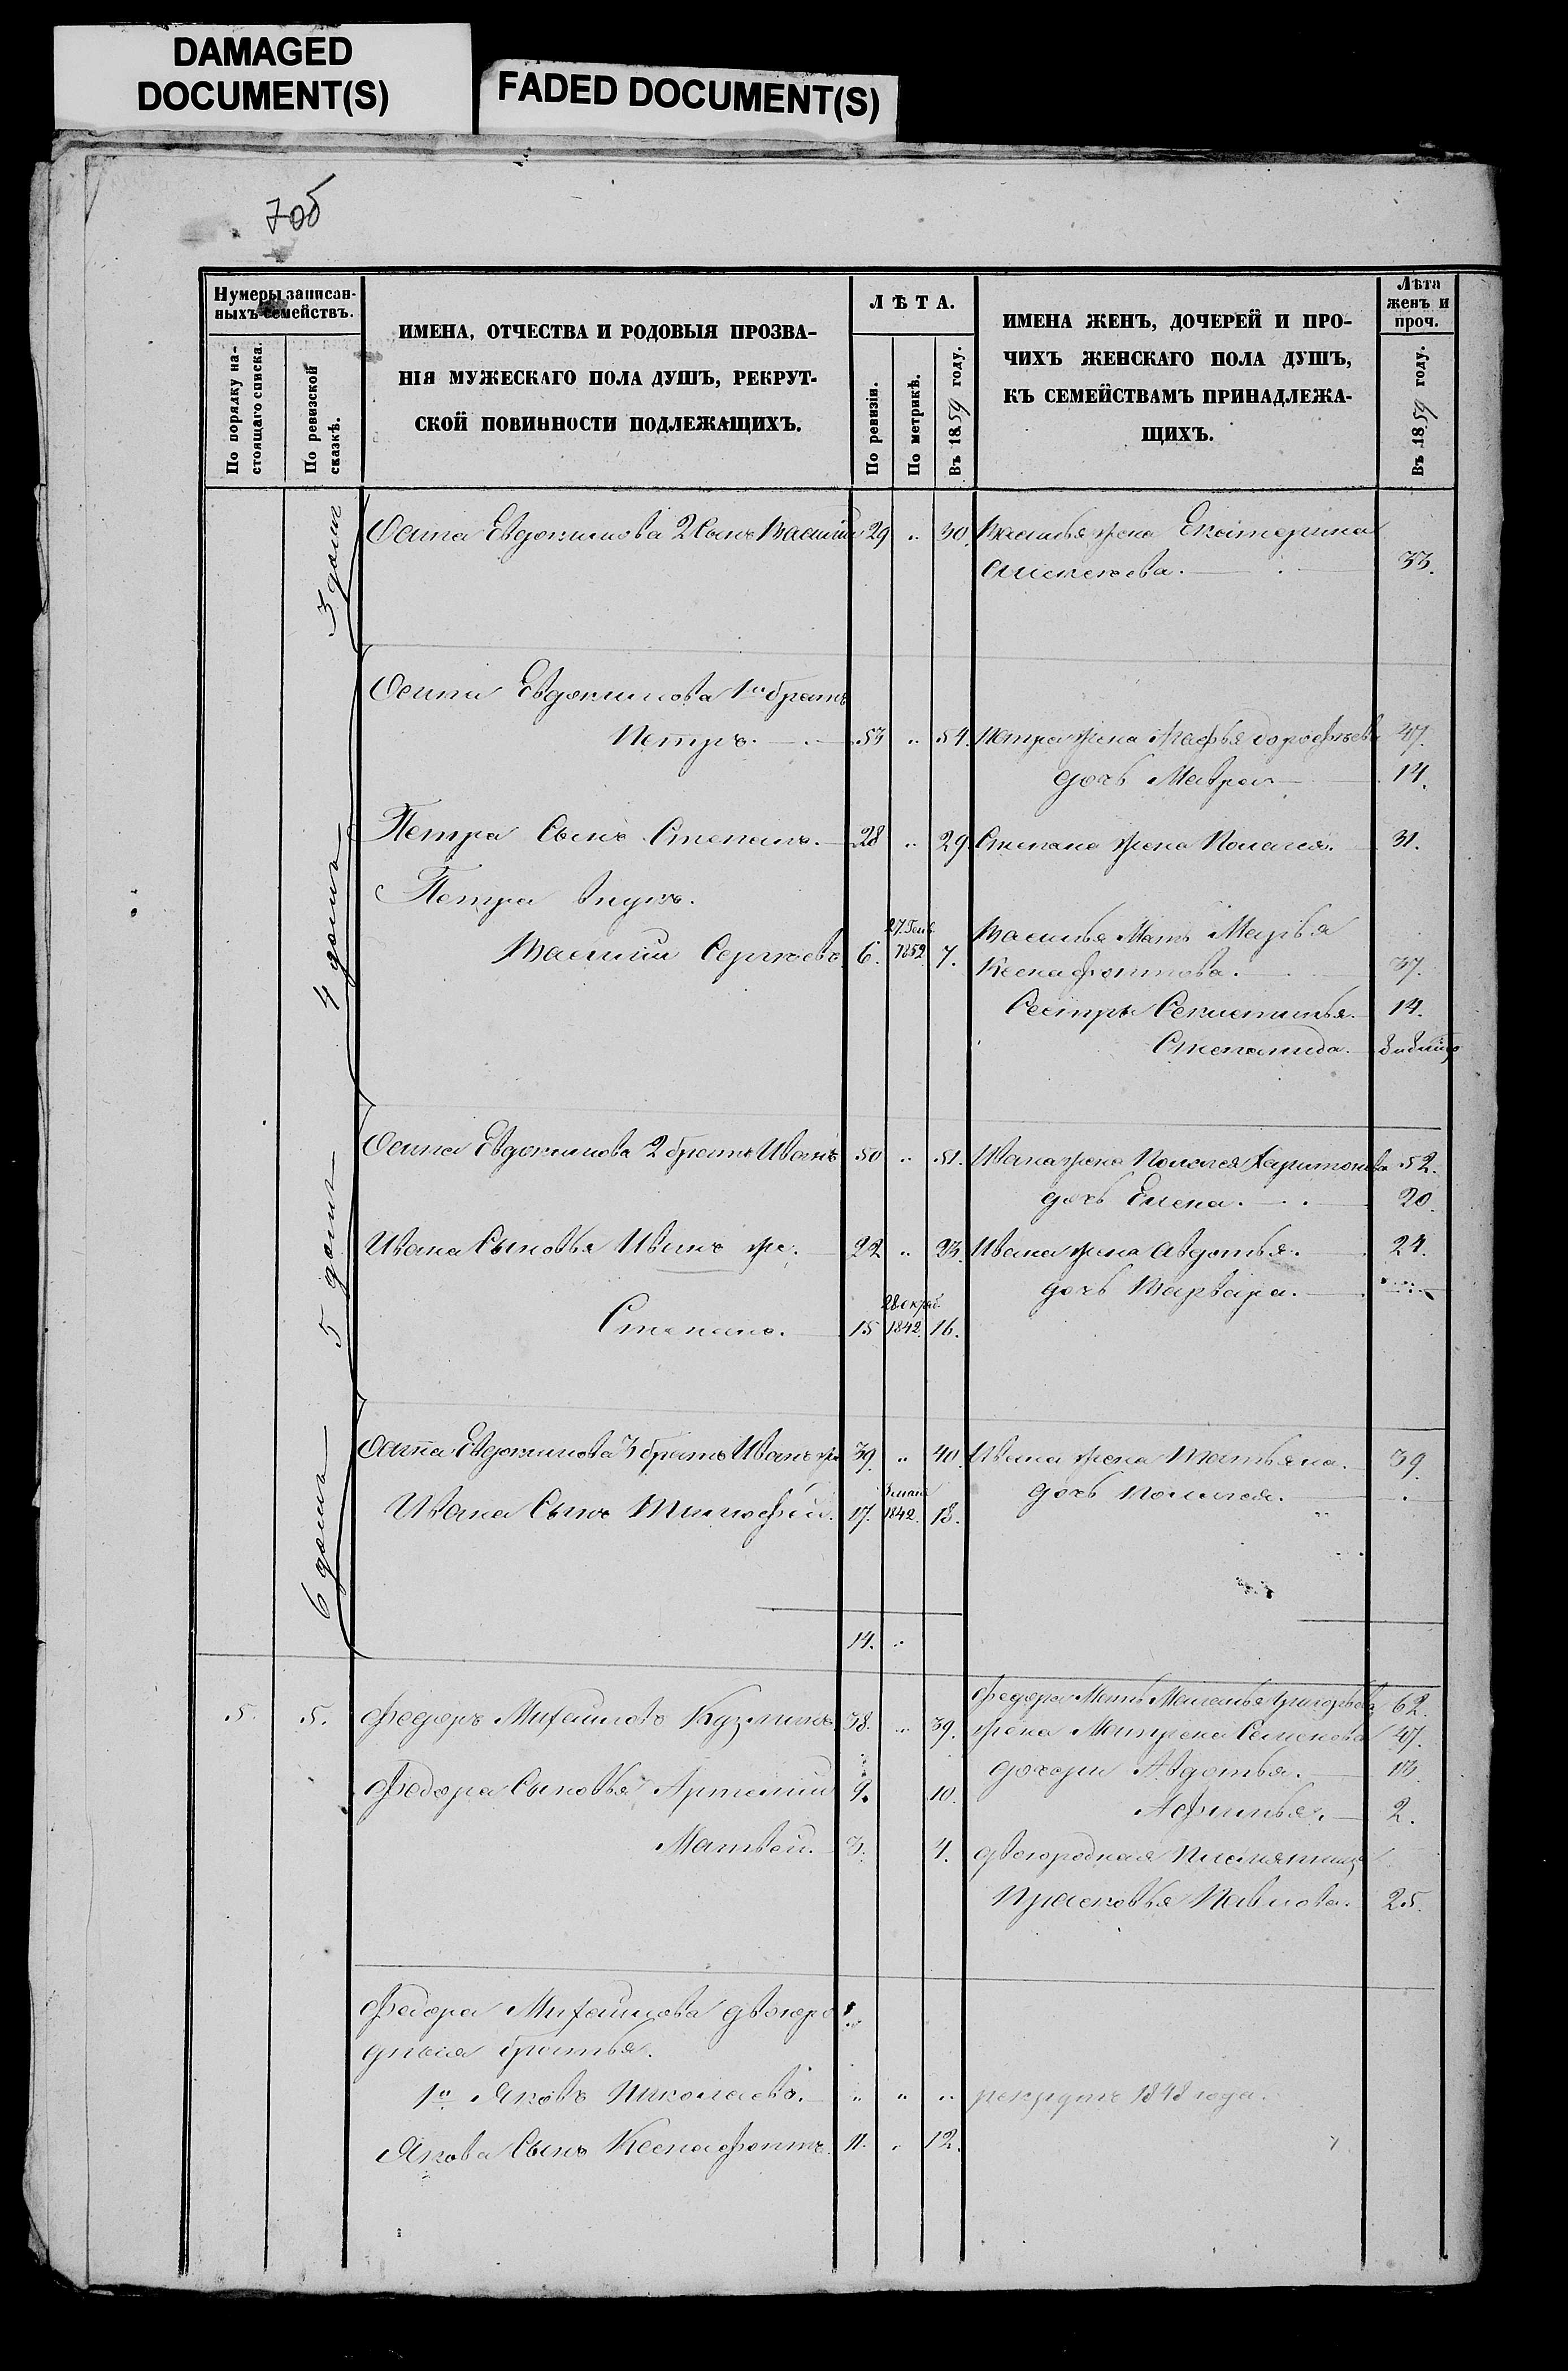 DAMAGED
DOCUMENT(S)
FADED DOCUMENT(S)
70об
Нумеры записан-
ныхъ семействъ.
По порядку на-
стоящаго списка.
По ревизской
сказкѣ.
ИМЕНА, ОТЧЕСТВА И РОДОВЫЯ ПРОЗВА-
НІЯ МУЖЕСКАГО ПОЛА ДУШЪ, РЕКРУТ-
СКОЙ ПОВИННОСТИ ПОДЛЕЖАЩИХЪ.
ЛѢТА.
По ревизіи.
По метрикѣ.
Въ 1859 году.
ИМЕНА ЖЕНЪ, ДОЧЕРЕЙ И ПРО-
ЧИХЪ ЖЕНСКАГО ПОЛА ДУШЪ,
КЪ СЕМЕЙСТВАМЪ ПРИНАДЛЕЖА-
ЩИХЪ.
Лѣта
женъ и
проч.
Въ 1859 году.
3 домъ
Осипа Евдокимова 2 Сынъ Василій 29 .. 30. Василья жена Екатерина
Алексѣева. 33.
4 домъ
Осипа Евдокимова 1й братъ
Петръ. 53 .. 54. Петра жена Агафья дорофѣева 47.
дочь Мавра 14.
Петра Сынъ Степанъ. 28 .. 29. Степана жена Полагея. 31.
Петра внукъ.
Василій Сергѣевъ 6. 27. Генв. 1852 7. Василья Мать Марья
Ксенофонтова. 37.
Сестры Секлетинья. 14.
Степанида.
5 домъ
Осипа Евдокимова 2 братъ Иванъ 50 .. 51. Ивана жена Полагея Харитонова 52.
дочь Елена. 20.
Ивана Сыновья Иванъ же. 22 .. 23. Ивана жена Авдотья. 24.
дочь Варвара.
Степанъ. 15 1842 16.
6 домъ
Осипа Евдокимова 3 братъ Иванъ же 39. .. 40. Ивана жена Татьяна. 39.
Ивана Сынъ Тимофей. 17. 1842. 18. дочь Полагея.
14. ..
5. 5. Федоръ Михайловъ Кузминъ. 38. .. 39. Федора Мать Маланья Григорьева 62.
жена Матрена Семенова 47.
Федора Сыновья Артемій 9. 10. дочери Авдотья. 13.
Афимья. 2.
Матвей. 3. 4. двоюродная племянница
Прасковья Павлова. 25.
Федора Михайлова двоюро
дныя братья.
1й Яковъ Николаевъ. .. .. .. рекрутъ 1848 года.
Якова Сынъ Ксенофонтъ. 11. . 12.